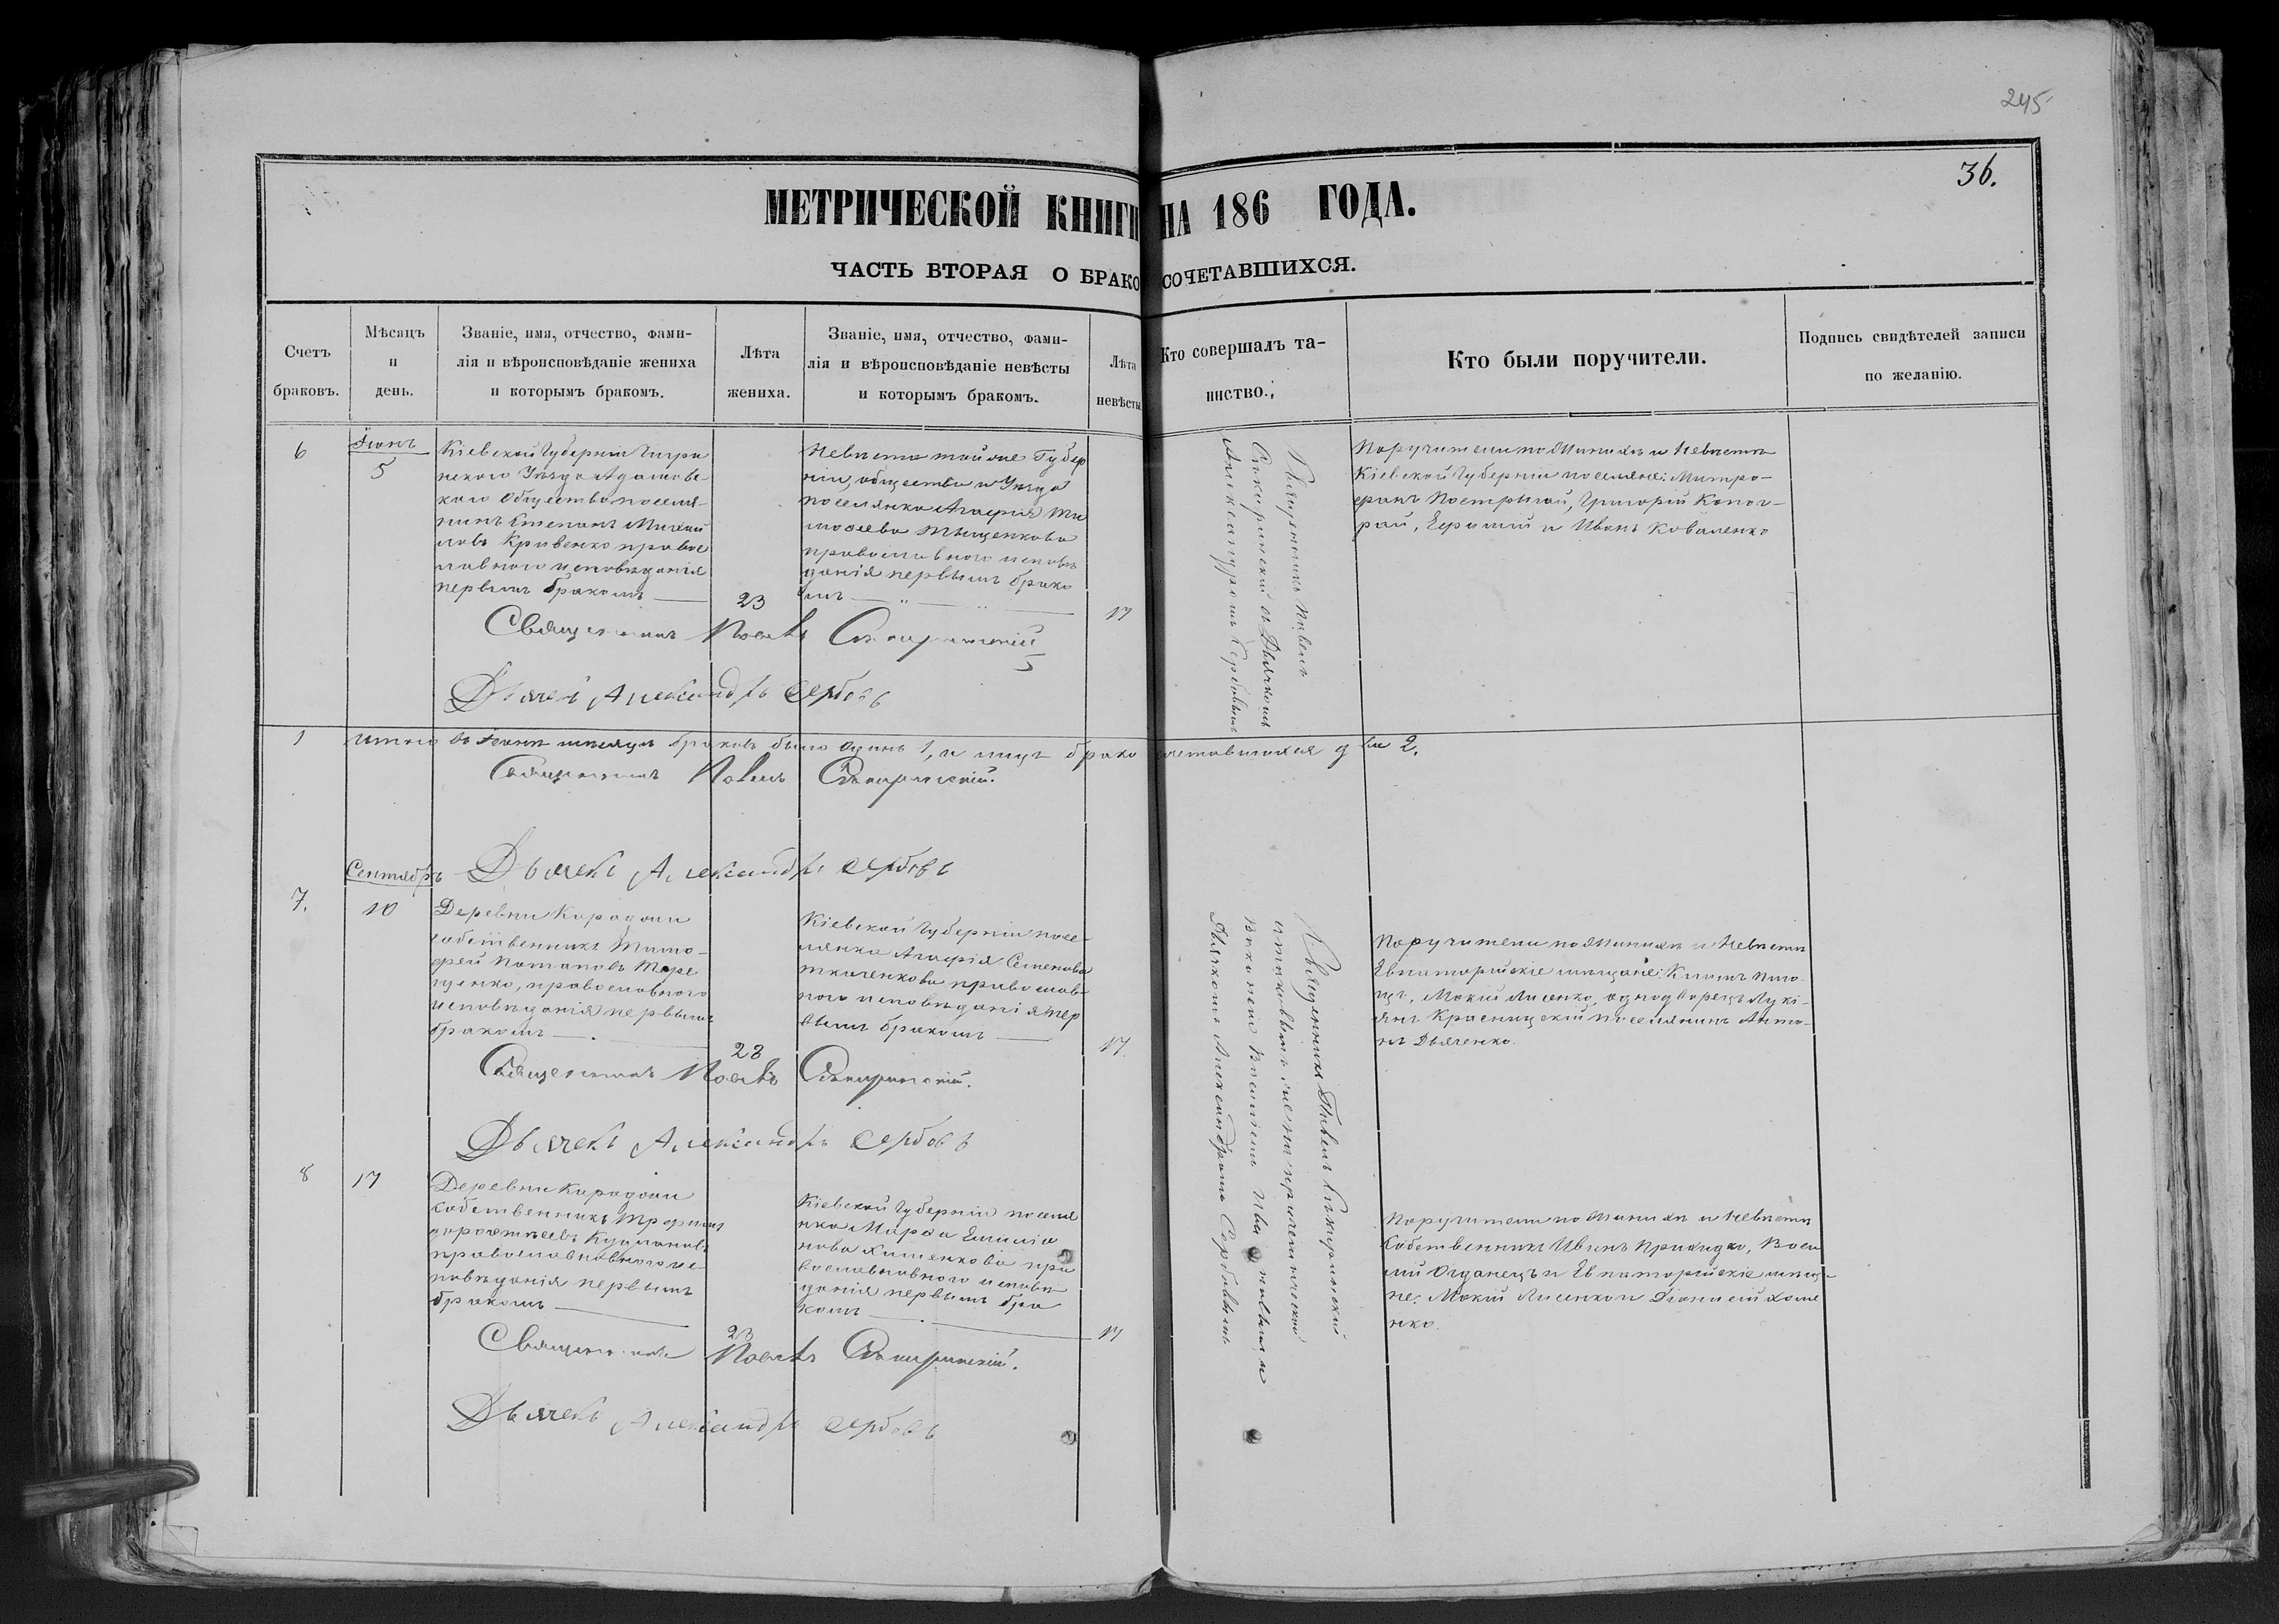 245
36.
МЕТРИЧЕСКОЙ КНИГИ НА 186 ГОДА.
ЧАСТЬ ВТОРАЯ О БРАКОСОЧЕТАВШИХСЯ.
Счетъ
браковъ.
Мѣсяцъ
и
день.
Званіе, имя, отчество, фами-
лія и вѣроисповѣданіе жениха
и которымъ бракомъ.
Лѣта
жениха.
Званіе, имя, отчество, фами-
лія и вѣроисповѣданіе невѣсты
и которымъ бракомъ.
Лѣта
невѣсты
Кто совершалъ та-
инство.
Кто были поручители.
Подпись свидѣтелей записи
по желанію.
6
Іюнь
5
Кіевской Губерніи Чигри
нского Уѣзда Адамовс-
кого Общества поселя-
нинъ Степанъ Михай
ловъ Кривенко правос
лавного исповѣданія
первымъ бракомъ
23
Невѣста той же Губер
ніи, общества и Уѣзда
поселянка Агафія Ти
мофеева
православного исповѣ
данія первымъ брако
мъ
17
Священникъ Павелъ
Сокиринский съ Дьячкомъ
Александромъ Сербовымъ
Поручители по Жинихѣ и Невѣстѣ
Кіевской Губерніи поселяне: Митро-
фанъ Пострыгай, Григорій Копог-
рай, Ефимий и Иванъ Коваленко
Священникъ Павелъ Сокиринскій
Дьячекъ Александръ Сербовъ
1
Итого въ Іюнѣ мѣсяцѣ браковъ было одинъ 1, а лицъ бракосочетавшихся два 2.
Священникъ Павелъ Сокиринскій.
Дьячекъ Александръ Сербовъ
7.
Сентябрь
10
Деревни Карагоди
собственникъ Тимо-
фей Потаповъ Тере
щенко, православного
исповѣданія первымъ
бракомъ
28
Кіевской Губерніи посе-
лянка Агафія Семенова
Ткаченкова православ-
ного исповѣданія пер
вымъ бракомъ
17.
Священникъ Павелъ Сокиринский
и таковымъ
Дьячкомъ Александромъ Сербовымъ
Поручители по Жинихѣ и Невѣстѣ
Евпаторійскіе мѣщане: Климъ
Мокій Лисенко, однодворецъ Лукі-
янъ Красницскій поселянинъ Анто-
нъ Дьяченко.
Священникъ Павелъ Сокиринскій.
Дьячекъ Александръ Сербовъ
8
17
Деревни Карагоди
собственникъ Трофимъ
Дорофѣевъ
православного ис-
повѣданія первымъ
бракомъ
23
Кіевской Губерніи поселя
нка Марфа
нова Хименкова пра
вославного исповѣ
данія первымъ бра
комъ
17
Поручители по Жинихѣ и Невѣстѣ
Собственники Иванъ Приходко, Васи
лій Оганецъ и Евпаторійскіе мѣща
не: Мокій Лисенко и Діонисій Хоме
нко.
Священникъ Павелъ Сокиринскій.
Дьячекъ Александръ Сербовъ